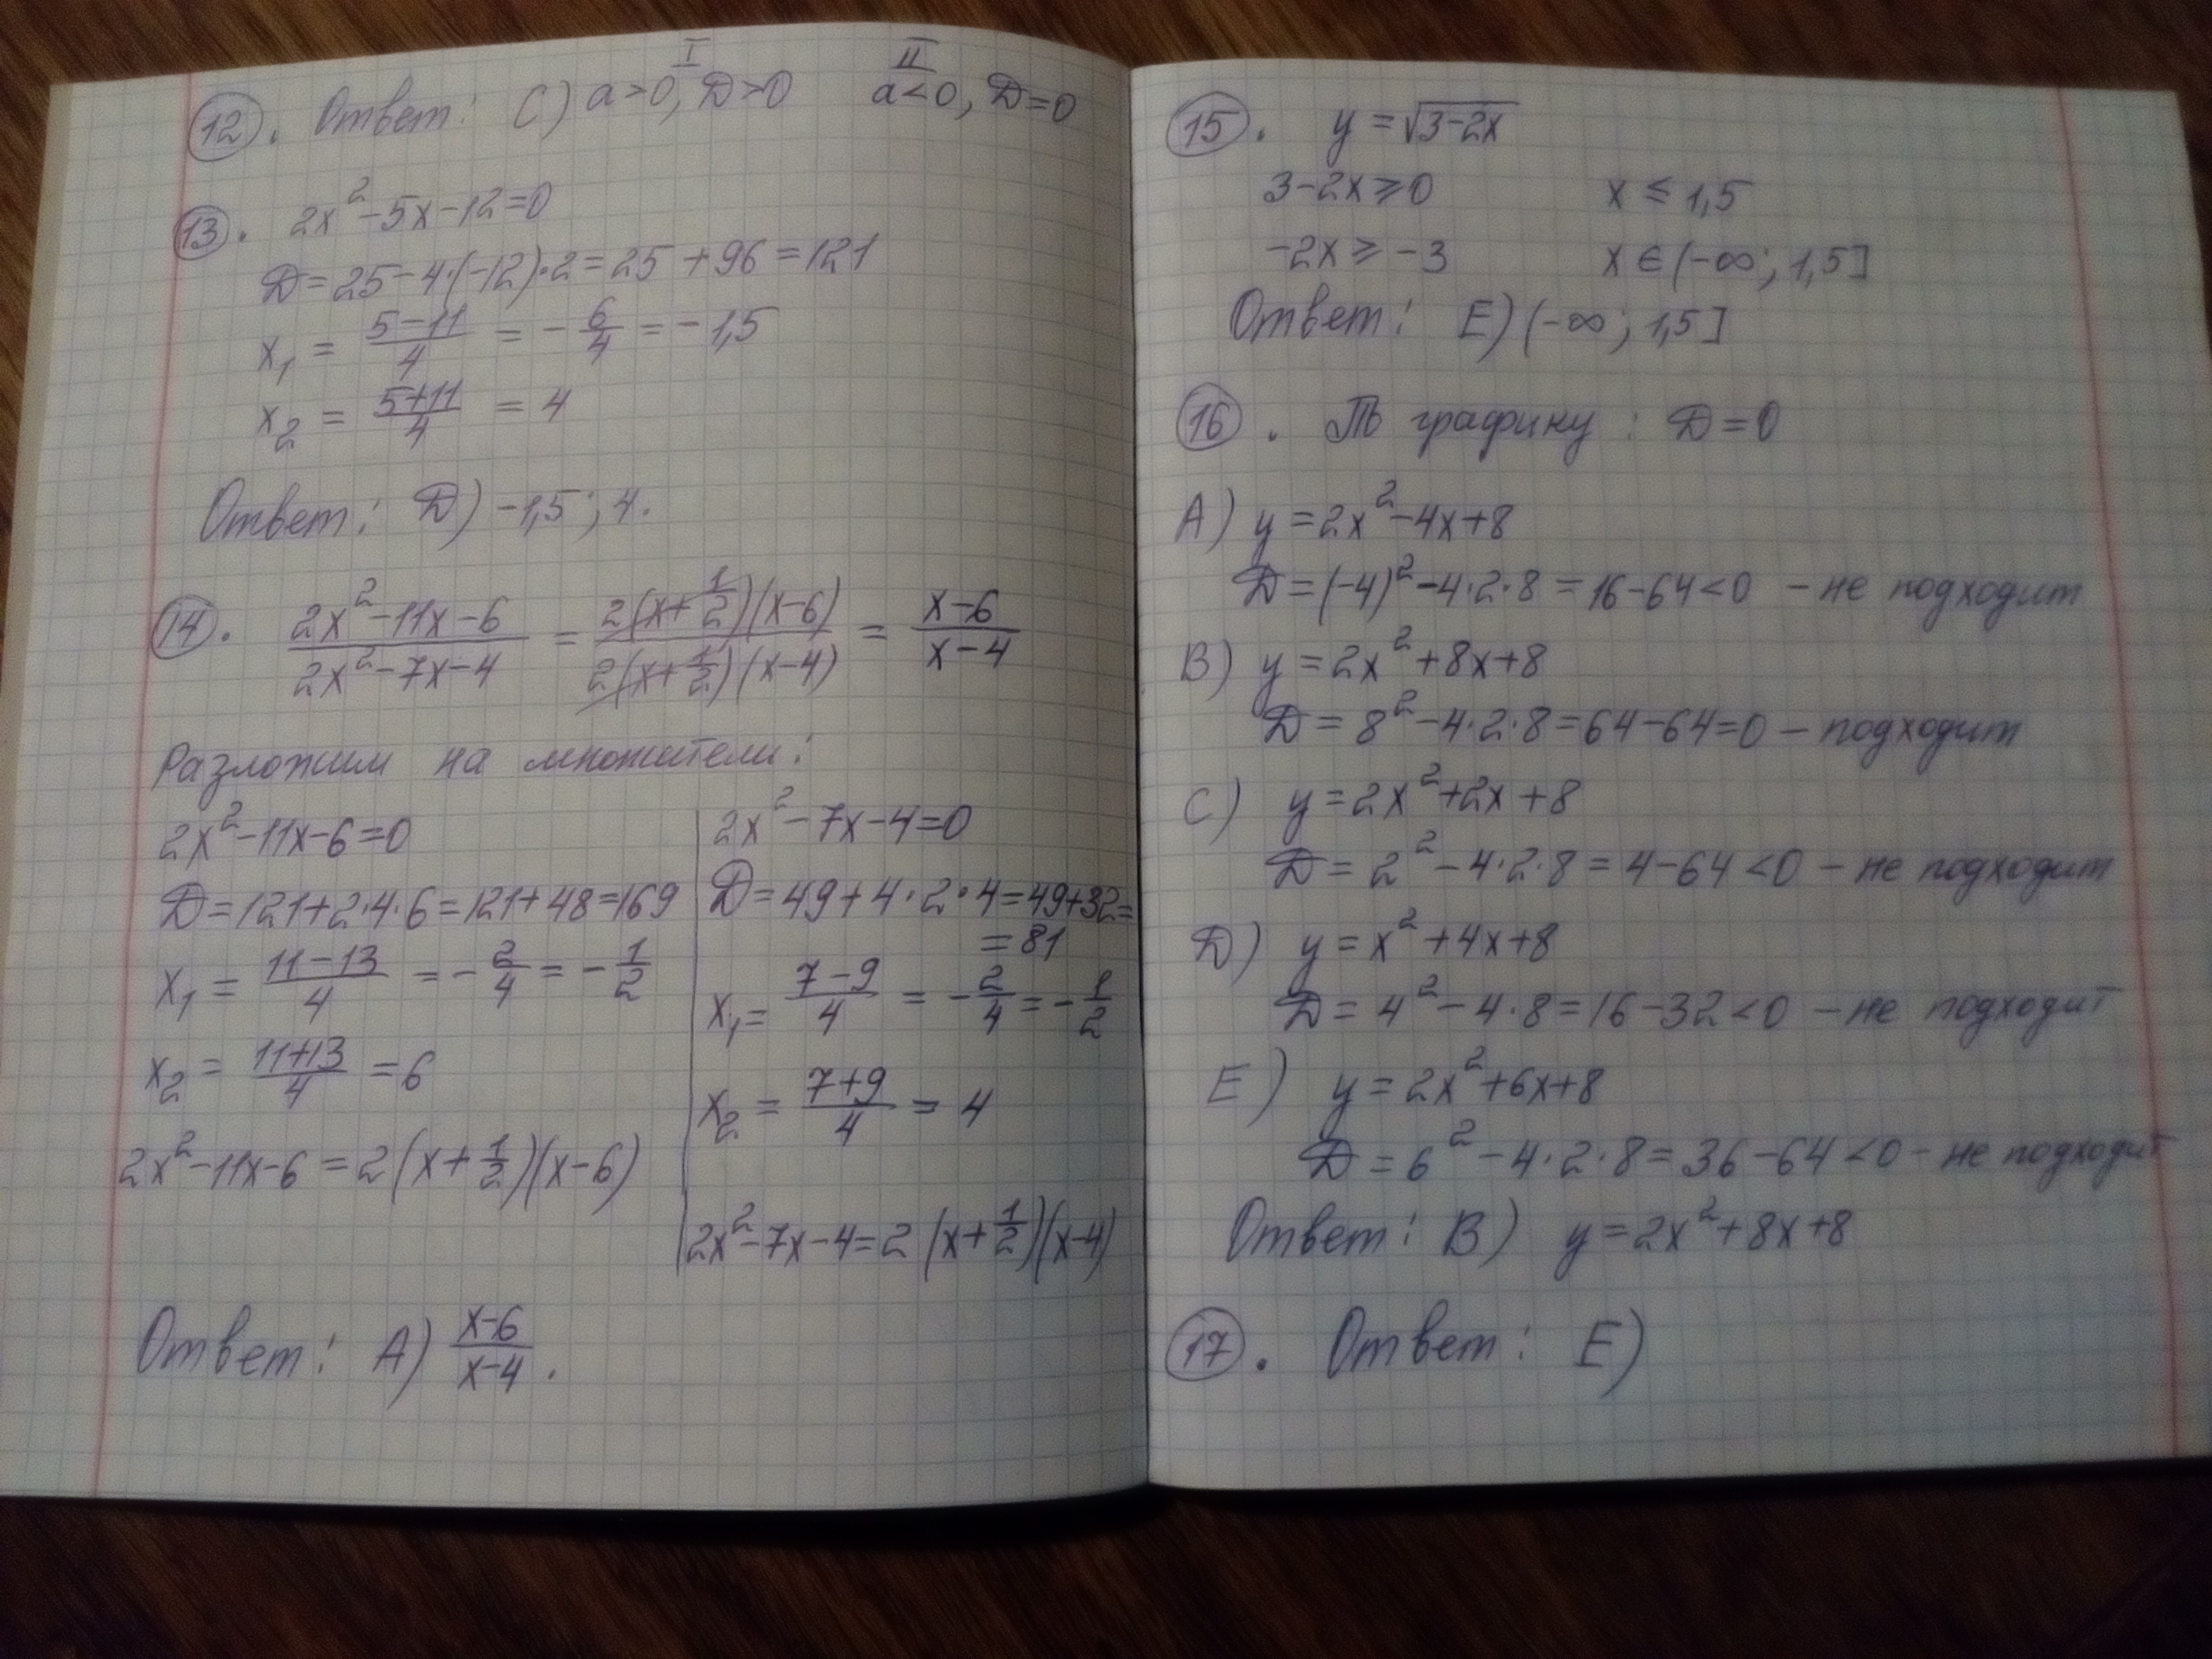 12. Ответ: C) a>0, D>0 a<0, D=0
I II
13. 2x²-5x-12=0
D=25-4·(-12)·2=25+96=121
x₁ = (5-11)/4 = -6/4 = -1,5
x₂ = (5+11)/4 = 4
Ответ: D) -1,5; 4.
14. (2x²-11x-6)/(2x²-7x-4) = (2(x+1/2)(x-6))/(2(x+1/2)(x-4)) = (x-6)/(x-4)
Разложим на множители:
2x²-11x-6=0
D=121+2·4·6=121+48=169
x₁ = (11-13)/4 = -2/4 = -1/2
x₂ = (11+13)/4 = 6
2x²-11x-6=2(x+1/2)(x-6)
2x²-7x-4=0
D=49+4·2·4=49+32=
=81
x₁= (7-9)/4 = -2/4 = -1/2
x₂ = (7+9)/4 = 4
2x²-7x-4=2(x+1/2)(x-4)
Ответ: A) (x-6)/(x-4).
15. y=√(3-2x)
3-2x≥0 x≤1,5
-2x≥-3 x∈(-∞; 1,5]
Ответ: E) (-∞; 1,5]
16. По графику: D=0
A) y=2x²-4x+8
D=(-4)²-4·2·8=16-64<0 - не подходит
B) y=2x²+8x+8
D=8²-4·2·8=64-64=0 - подходит
C) y=2x²+2x+8
D=2²-4·2·8=4-64<0 - не подходит
D) y=x²+4x+8
D=4²-4·8=16-32<0 - не подходит
E) y=2x²+6x+8
D=6²-4·2·8=36-64<0 - не подходит
Ответ: B) y=2x²+8x+8
17. Ответ: E)